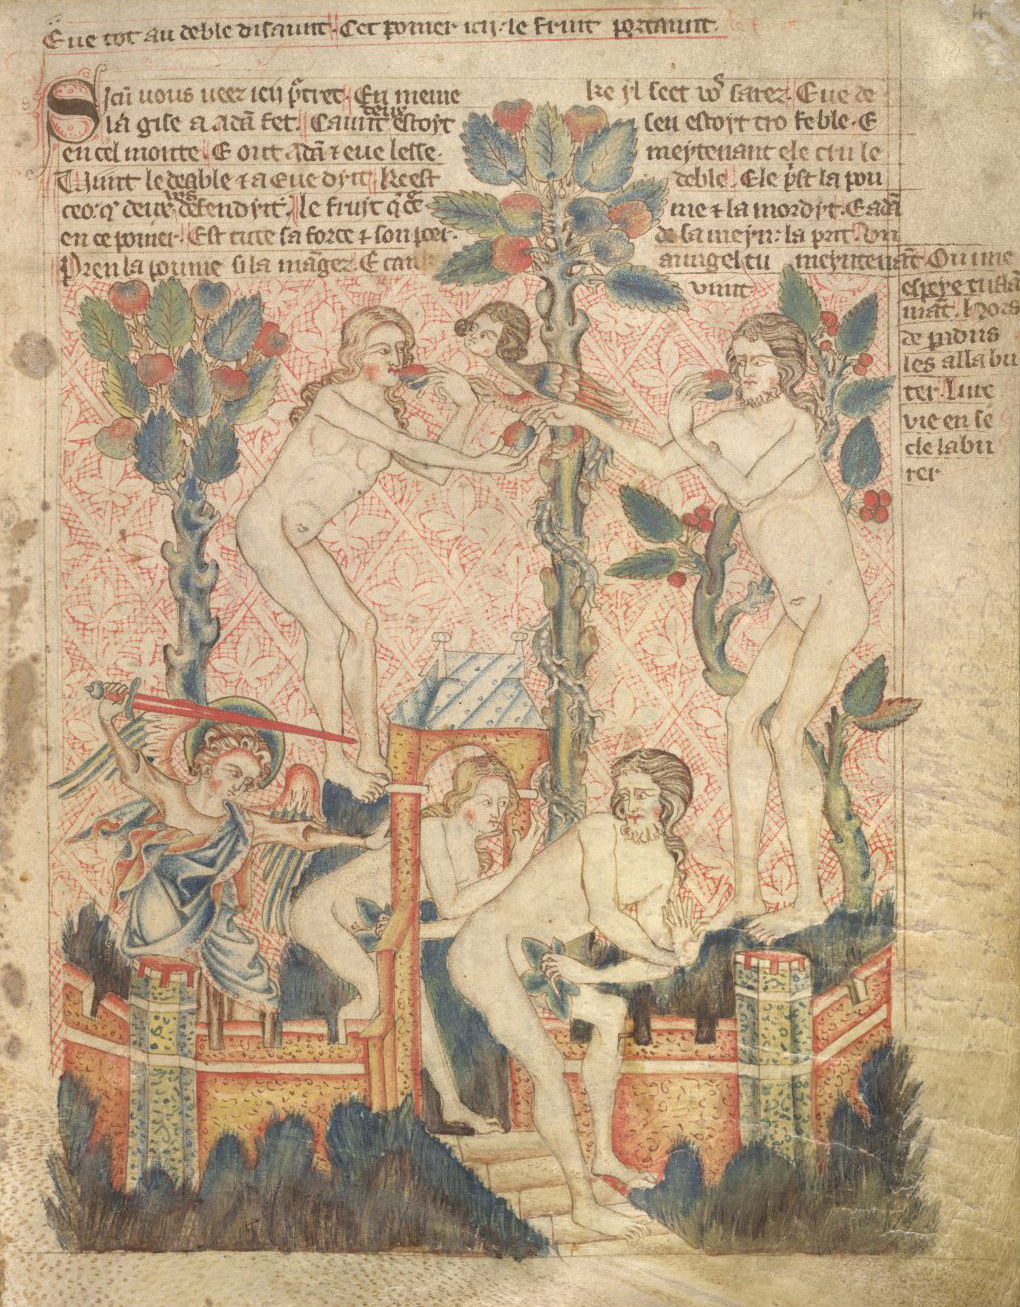 Eue tot au deble disaunt. Cet pomer icy. le fruit portaunt.
Scū uous ueez icy p̄tret. En meme
la gise a adā fet. Cauint estoyt
deuz
en cel monte. E ont Adā ⁊ eue lesse.
Vint le deable ⁊ a Eue dyt. Re est
ceo. q̄ deus defendyt. le fruyt q̄ c̄
en ce pomer. Est tute sa force ⁊ son poer.
Pren la poume si la māger. E tant
ke yl seet wꝰ sarez. Eue de
seu estoyt tro feble. E
meytenant ele cru le
deble. Ele p̄st la pou
me ⁊ la mordyt. E adā
de sa meyn: la prit. Vn
aungel tu meyntenāt.
vint
Ou une
espeye
māt. hors
de paradis
les alla bu
ter. Lure
vie en se
cle labu
rer